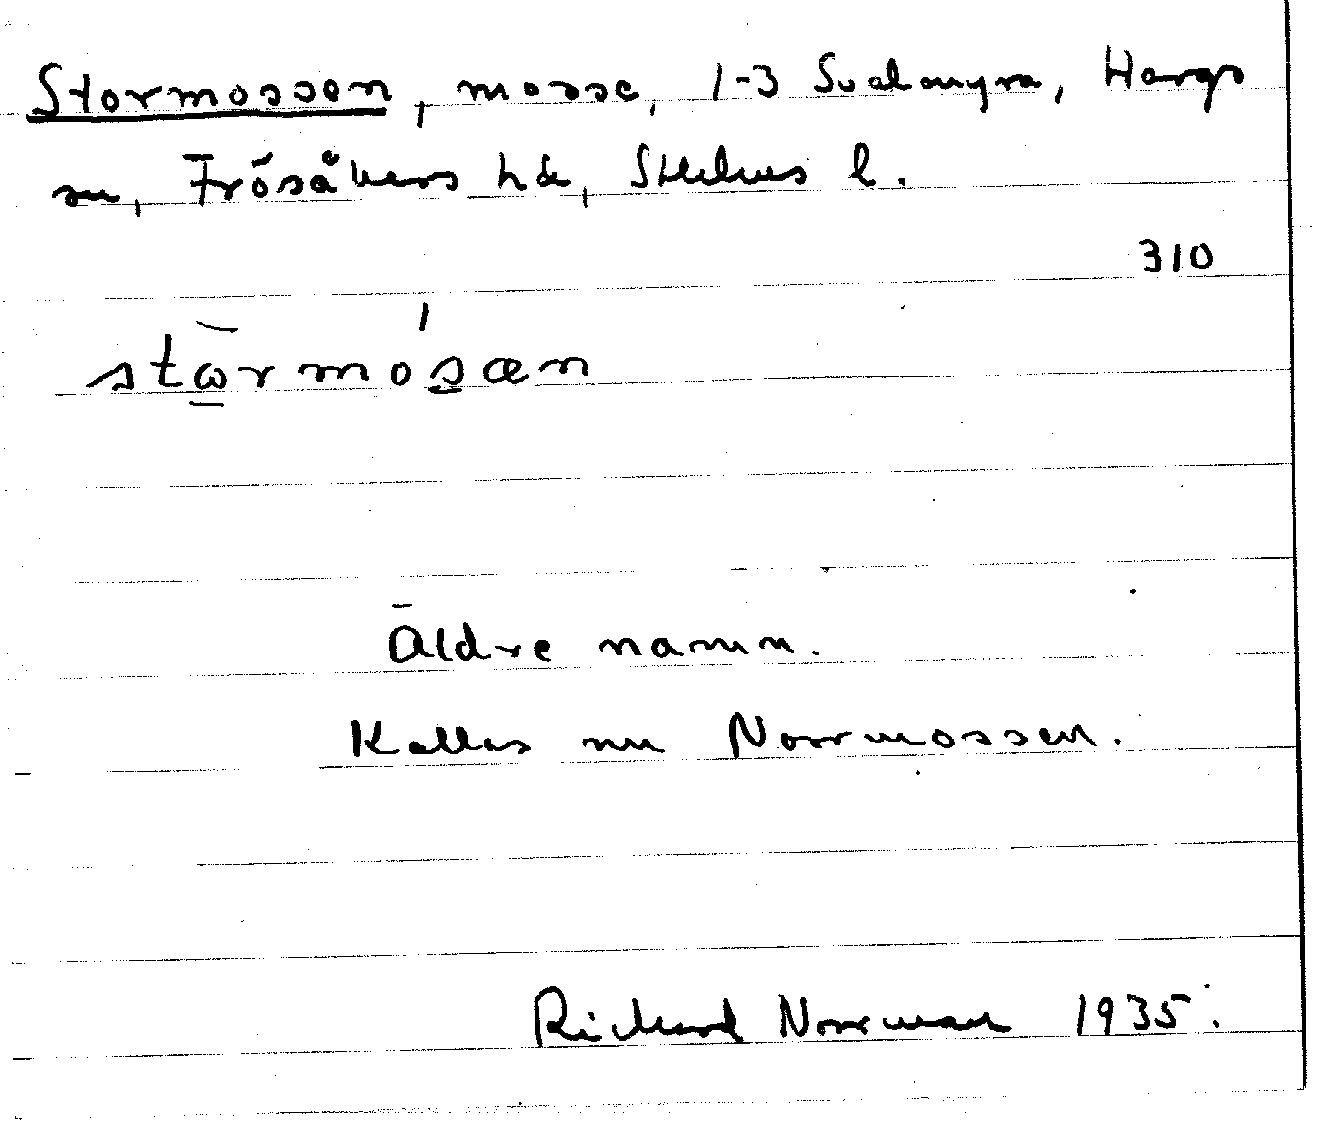 Stormossen, mosse, 1-3 Svalmyra, Hargs
sn, Frösåkers hd, Sthlms l.
310
stω̲rmós̲æn
Äldre namn.
Kallas nu Norrmossen.
Richard Norrman 1935.